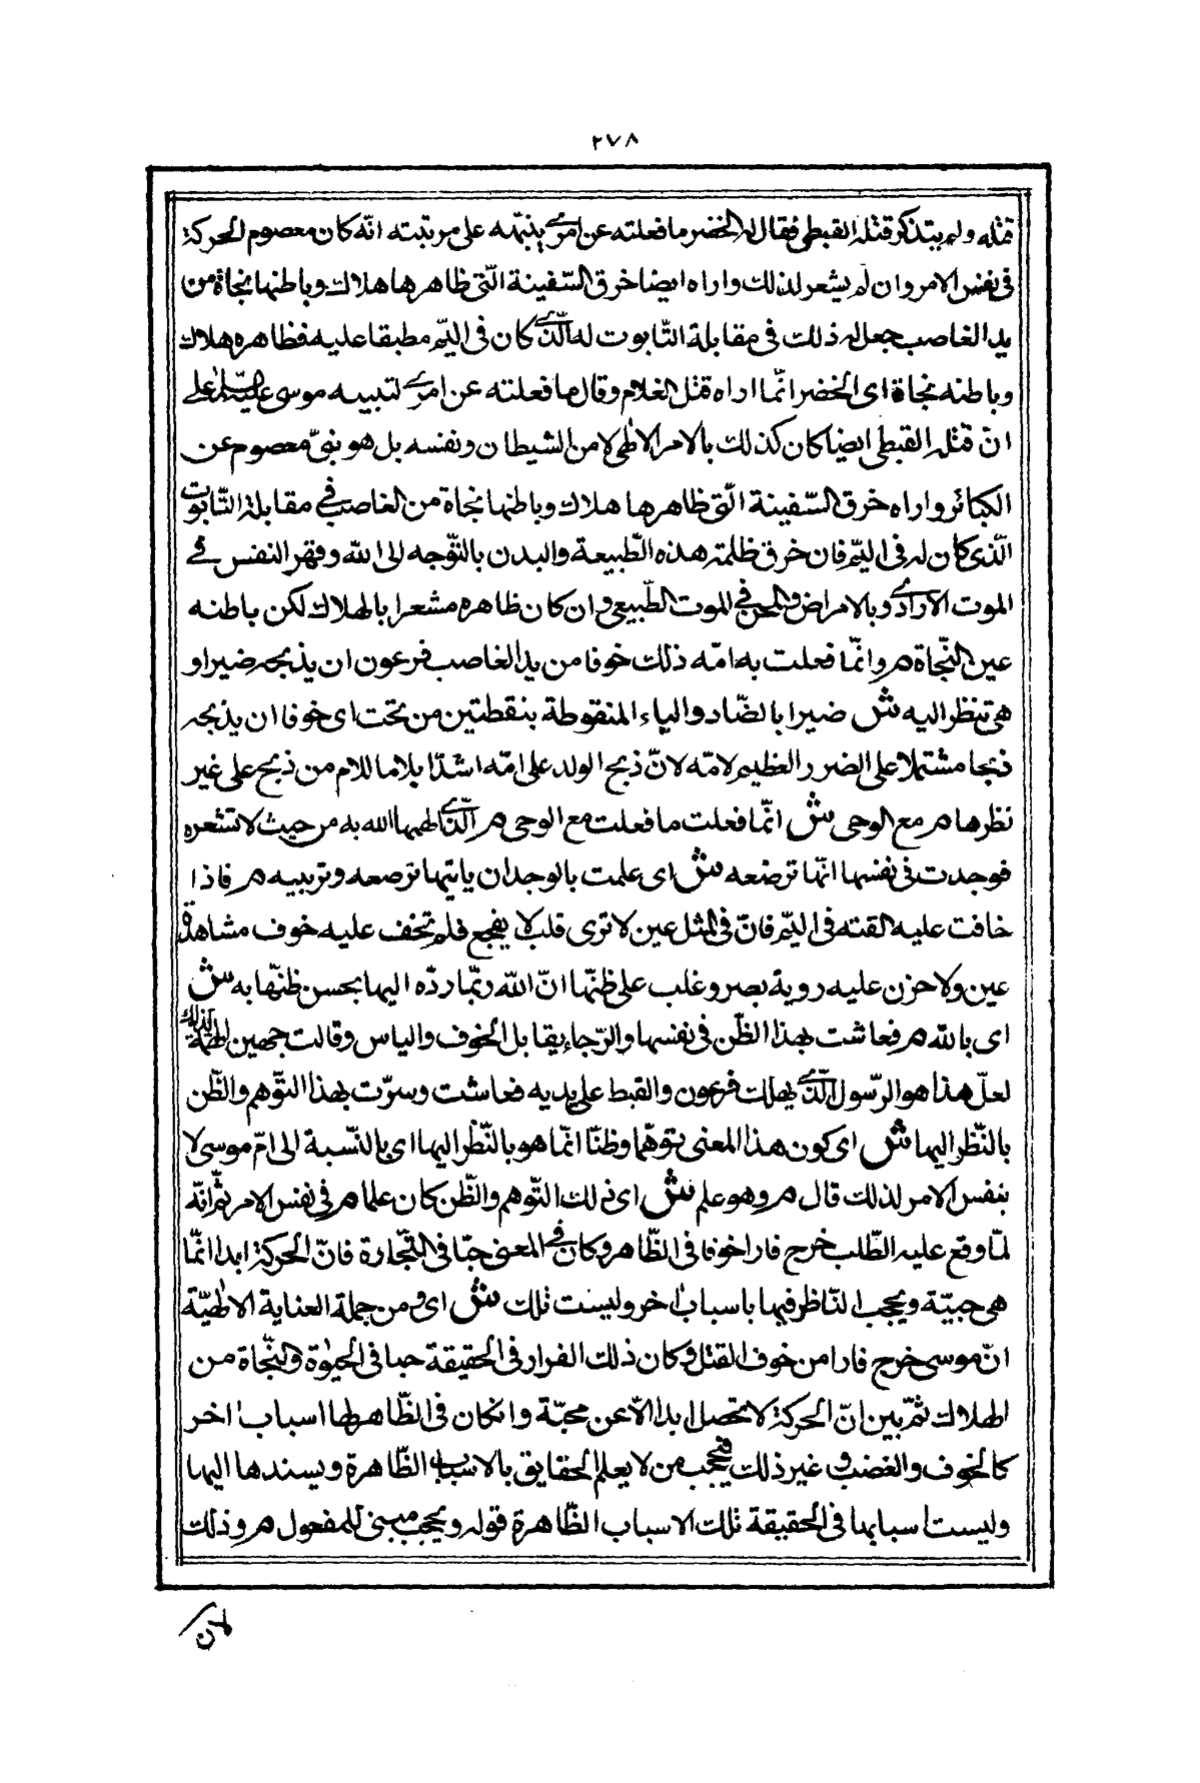 ٢٧٨
قتله ولم يتذكر قتله القبطى فقال له الخضر ما فعلته عن امرى ينبهه على مرتبته انّه كان معصوم الحركة
فى نفس الامر وان لم يشعر لذلك واراه ايضا خرق السّفينة الّتى ظاهرها هلاك وباطنها نجاة من
يد الغاصب جعل له ذلك فى مقابلة التّابوت له الّذى كان فى اليّم مطبقا عليه فظاهره هلاك
وباطنه نجاة اى الخضر انّما اراه قتل الغلام وقال ما فعلته عن امرى لتنبيه موسى عليه السّلام على
انّ قتله القبطى ايضا كان كذلك بالامر الالٰهى لا من الشيطان ونفسه بل هو نبىّ معصوم عن
الكبائر واراه خرق السّفينة الّتى ظاهرها هلاك وباطنها نجاة من الغاصب فى مقابلة التّابوت
الّذى كان له فى اليّم فان خرق ظلمة هذه الطّبيعة والبدن بالتّوجه الى الله وقهر النفس فى
الموت الارادى وبالامراض والمحن فى الموت الطّبيعى وان كان ظاهره مشعرا بالهلاك لكن باطنه
عين النّجاة م وانّما فعلت به امّه ذلك خوفا من يد الغاصب فرعون ان يذبحه ضيرا و
هى تنظر اليه ش ضيرا بالضّاد والياء المنقوطة بنقطتين من تحت اى خوفا ان يذبحه
ذبحا مشتملا على الضرر العظيم لامّه لانّ ذبح الولد على امّه اشدّ ايلاما للام من ذبح على غير
نظرها م مع الوحى ش انّما فعلت ما فعلت مع الوحى م الّذى الهمها الله به من حيث لا تشعر ه
فوجدت فى نفسها انّها ترضعه ش اى علمت بالوجدان يا بنها ترضعه وتربيه م فاذا
خافت عليه القته فى اليّم فانّ فى المثل عين لا ترى قلب لا يفجع فلم تخف عليه خوف مشاهدة
عين ولا حزن عليه روية بصر وغلب على ظنّها انّ الله ربّما ردّه اليها بحسن ظنّها به ش
اى بالله م فعاشت بهذا الظّن فى نفسها والرّجاء يقابل الخوف والياس وقالت حين الهمت لذلك
لعلّ هذا هو الرّسول الّذى يهلك فرعون والقبط على يديه فعاشت وسرّت بهذا التوّهم والظّن
بالنّظر اليها ش اى كون هذا المعنى توهّما وظنّا انّما هو بالنّظر اليها اى بالنّسبة الى امّ موسى لا
بنفس الامر لذلك قال م وهو علم ش اى ذلك التّوهم والظّن كان علما م فى نفس الامر ثمّ انّه
لمّا وقع عليه الطّلب خرج فارا خوفا فى الظّاهر وكان فى المعنى حبّا فى النّجاة فانّ الحركة ابدا انّما
هى حبيّة ويحجب النّاظر فيها باسباب اخر وليست تلك ش اى ومن جملة العناية الالٰهيّة
انّ موسى خرج فارا من خوف القتل وكان ذلك الفرار فى الحقيقة حبا فى الحيوٰة والنّجاة من
الهلاك ثمّ بين انّ الحركة لا تحصل ابدا الّا عن محبّة وانكان فى الظّاهر لها اسباب اخر
كالخوف والغضب وغير ذلك فيحجب من لا يعلم الحقايق بالاسباب الظّاهرة ويسندها اليها
وليست اسبابها فى الحقيقة تلك الاسباب الظّاهرة قوله ويحجب مبنى للمفعول م وذلك
لان